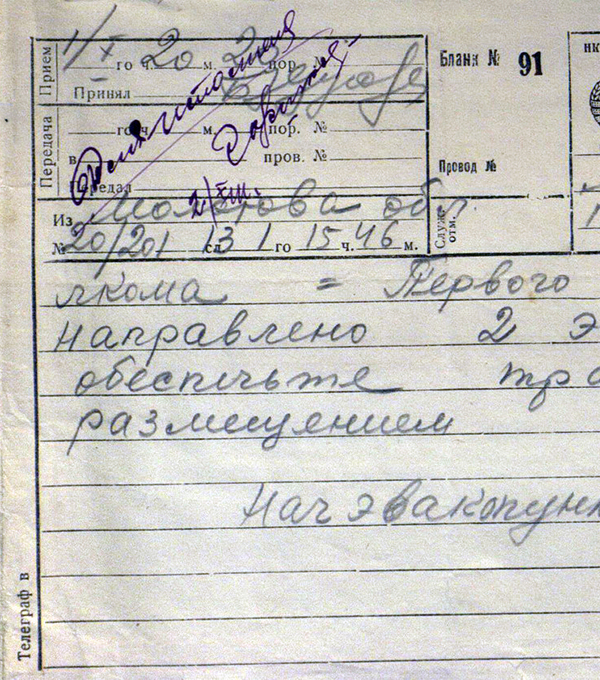 Прием
1/XI го ч. 20 м. 23 пор. №
Принял
Передача
го ч. м. пор. №
в пров. №
Передал
2/XII.
Бланк № 91
Провод №
Служ. отм.
Из Молотова об
№ 20/201 сл. 13 1 го 15 ч. 46 м.
лкома = Первого
направлено 2 э
обеспечьте тра
размещением
Нач эвакопунк
Телеграф в
нк